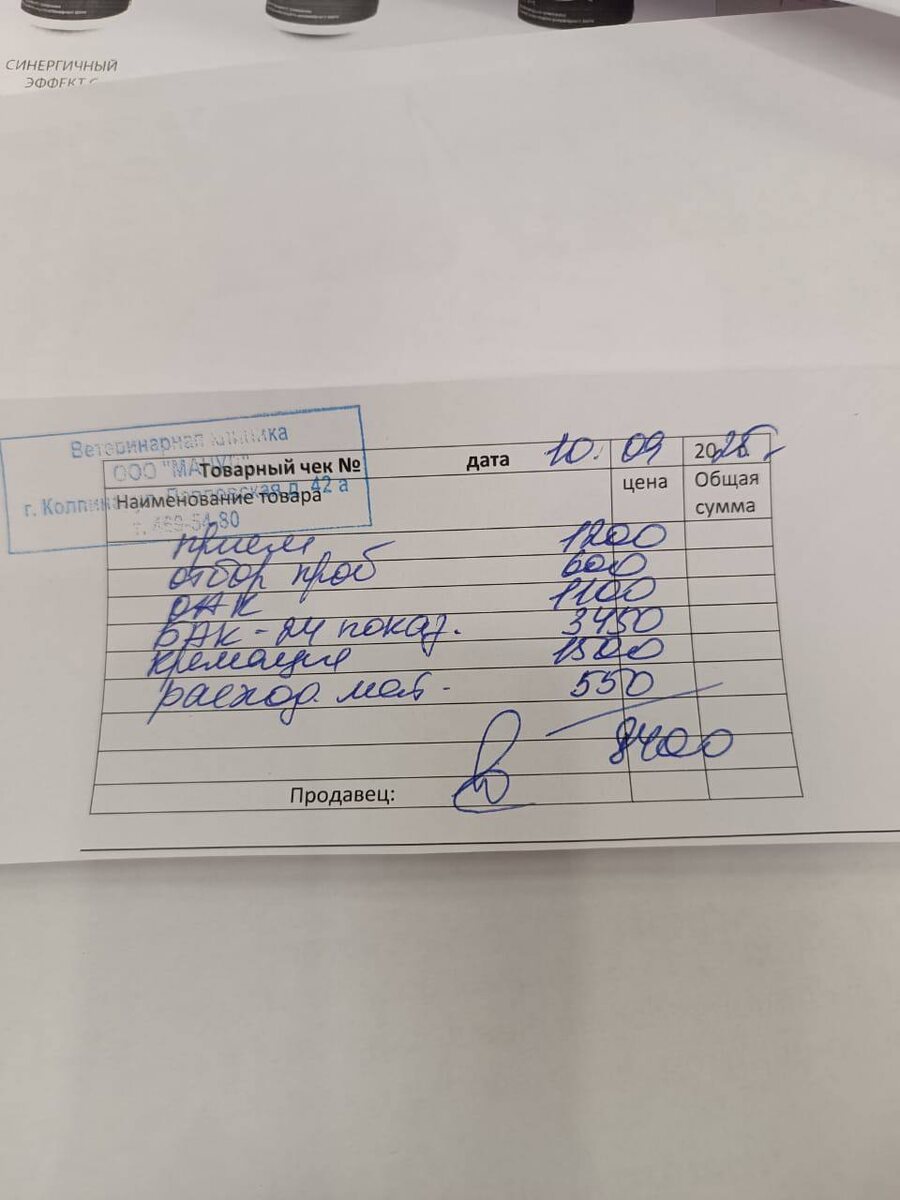 СИНЕРГИЧНЫЙ
ЭФФЕКТ С
Ветеринарная клиника
ООО "МАНУЛ"
г. Колпино, ул. Павловская д. 42 а
т. 469-54-80
Товарный чек № дата 10. 09 2025 г
Наименование товара цена Общая сумма
прием 1200
отбор проб 600
ОАК 1100
БАК - 24 показ. 3450
кремация 1500
расход. мат - 550
8400
Продавец: